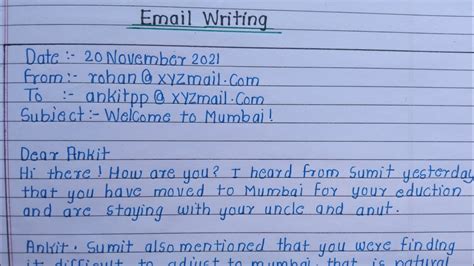 Email Writing
Date :- 20 November 2021
From:- rohan@xyzmail.com
To :- ankitpp@xyzmail.com
Subject:- Welcome to Mumbai!
Dear Ankit
Hi there! How are you? I heard from Sumit yesterday
that you have moved to Mumbai for your eduction
and are staying with your uncle and anut.
Ankit. Sumit also mentioned that you were finding
it difficult to adjust to mumbai, that is natural